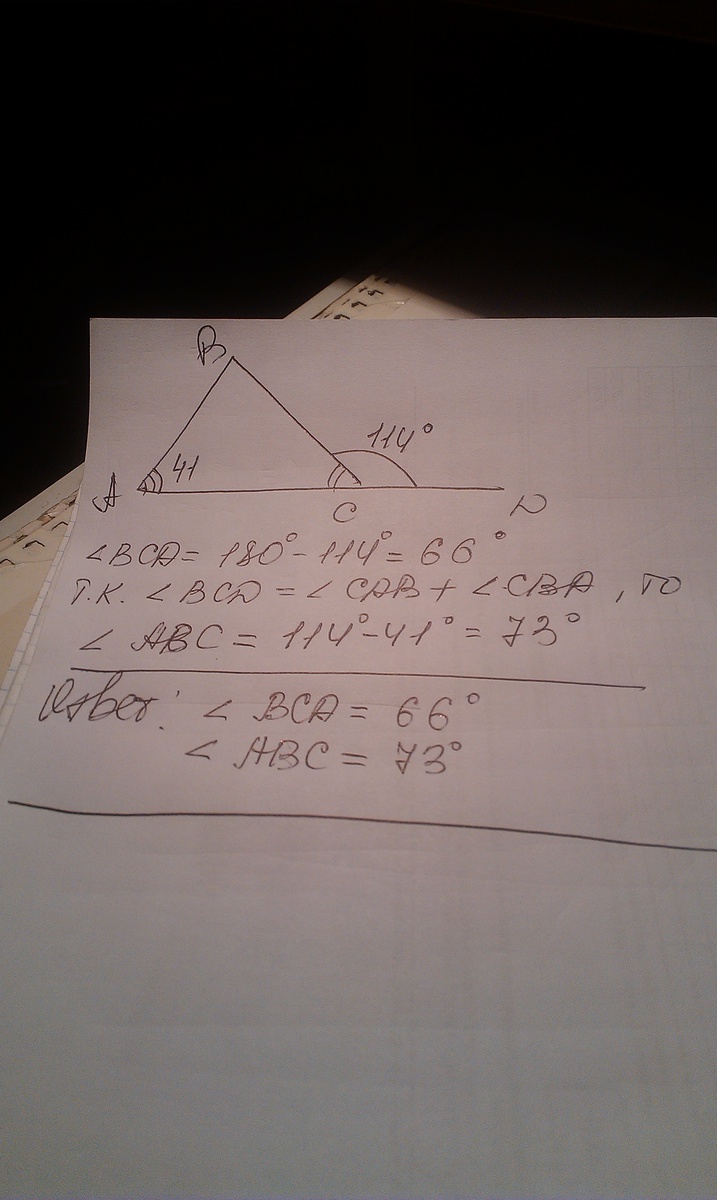 B
114°
41
A
C
D
∠BCA = 180° - 114° = 66°
Т.К. ∠BCD = ∠CAB + ∠CBA, ТО
∠ABC = 114° - 41° = 73°
Ответ: ∠BCA = 66°
∠ABC = 73°